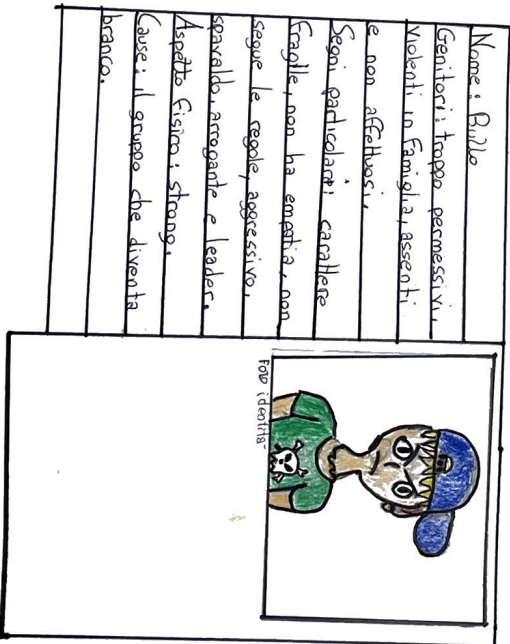 Nome: Bullo
Genitori: troppo permessivi,
violenti in famiglia, assenti
e non affettuosi,
Segni particolari: carattere
fragile, non ha empatia, non
segue le regole, aggressivo,
spavaldo, arrogante e leader.
Aspetto fisico: strong.
Cause: il gruppo che diventa
branco.
Foto identità